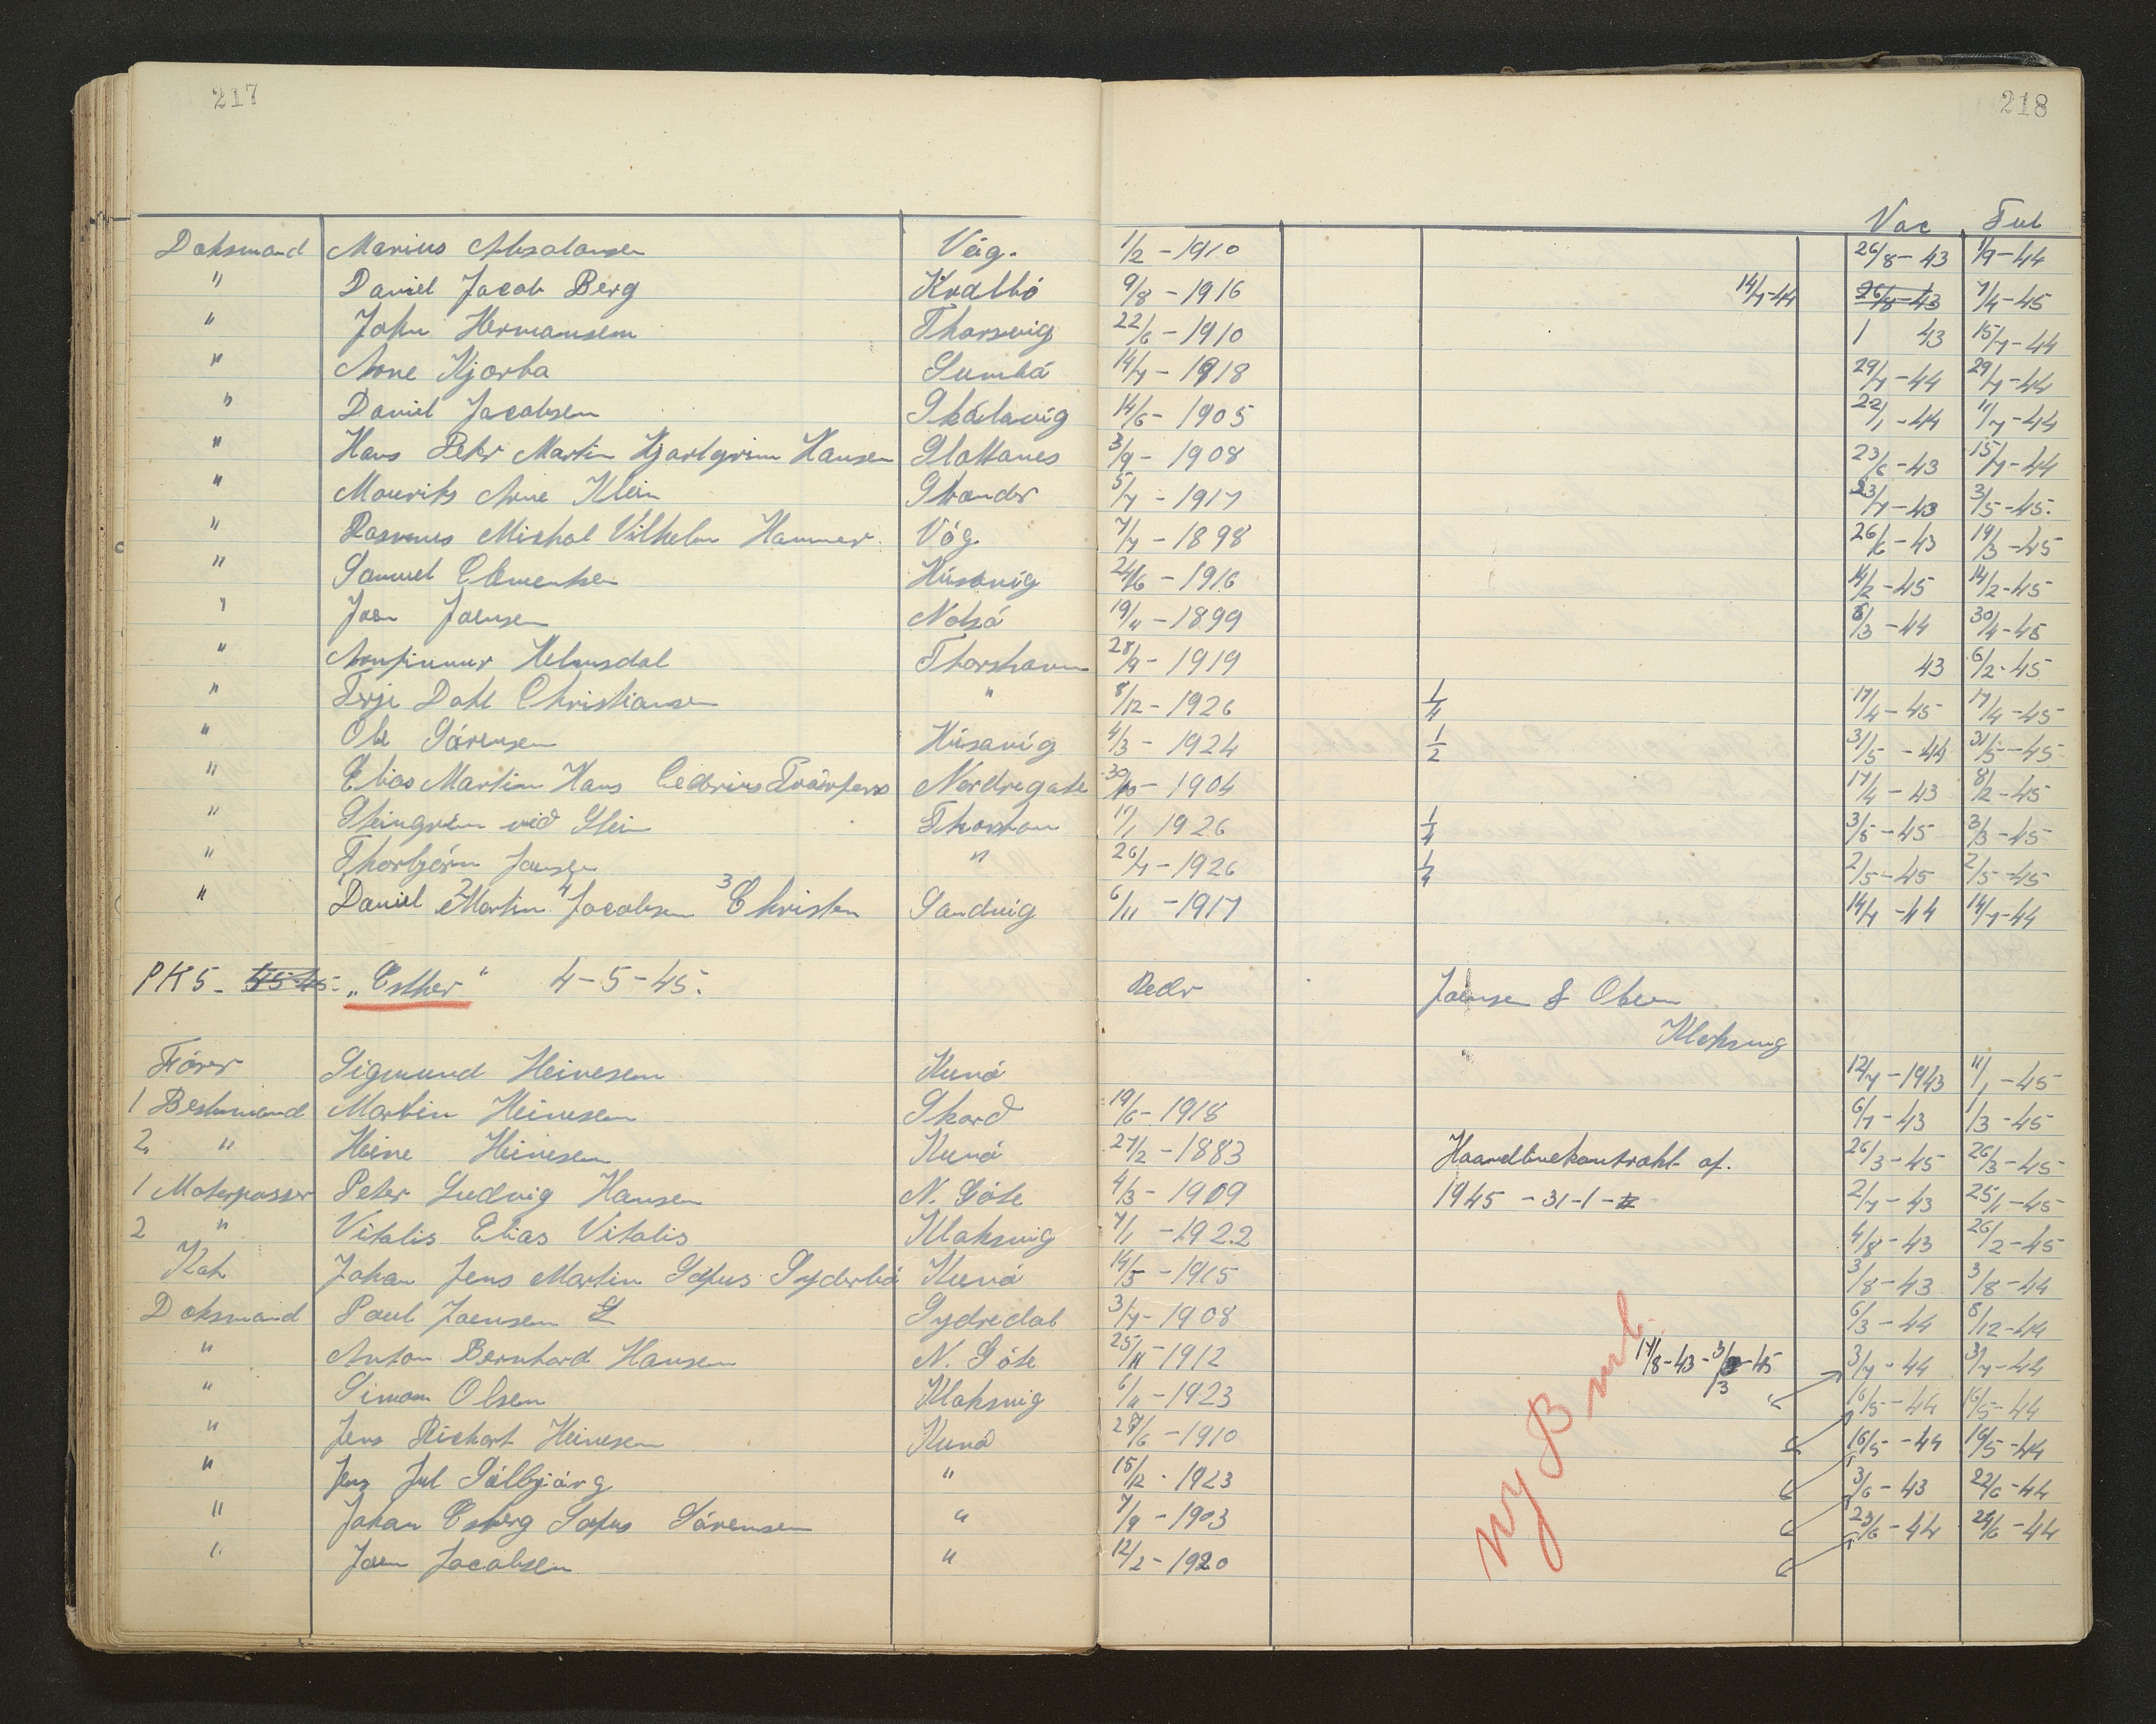 217 218
Vac Tub
Daksmand Marius Absalonsen Våg. 1/2 - 1910 26/8 - 43 1/9 - 44
" Daniel Jacob Berg Kvalbö 9/8 - 1916 14/7-44 26/8-43 7/4 - 45
" John Hermansen Thorsvig 22/6 - 1910 1 43 15/7 - 44
" Arne Kjærbo Sumbå 14/7 - 1918 29/7 - 44 29/7 - 44
" Daniel Jacobsen Skålavig 14/6 - 1905 22/1 - 44 11/7 - 44
" Hans Petr Martin Hjartgrim Hansen Glottanes 3/9 - 1908 23/6 - 43 15/7 - 44
" Mourits Arne Klein Strander 5/7 - 1917 23/7 - 43 3/5 - 45.
" Rasmus Michal Vilhelm Hammer Våg 7/7 - 1898 26/6 - 43 19/3 - 45
" Samuel Clementsen Húsavig 24/6 - 1916 14/2 - 45 14/2 - 45
" Joen Joensen Nolsö 19/11 - 1899 8/3 - 44 30/4 - 45
" Arnfinnur Helmsdal Thorshavn 28/9 - 1919 43 6/2 - 45
" Terji Dahl Christiansen " 8/12 - 1926 1/4 17/4 - 45 17/4 - 45
" Ole Sörensen Húsavig 4/3 - 1924 1/2 31/5 - 44 31/5 - 45
" Elias Martin Hans Nordregøte 30/10 - 1904 17/4 - 43 8/2 - 45
" Steingrim við Stein 17/1 1926 1/4 3/5 - 45 3/3 - 45
" Thorbjörn Jensen " 26/7 - 1926 1/4 2/5 - 45 2/5 - 45
" Daniel 2 Martin 4 Jacobsen 3 Christen Sandvig 6/11 - 1917 14/7 - 44 14/7 - 44
PK 5 - „Esther" 4 - 5 - 45. Redr Joensen & Olsen
Klaksvig
Förer Sigmund Heinesen Kunö 12/7 - 1943 11/1 - 45
1 Bestmand Martin Heinesen Skard 19/6 - 1918 6/7 - 43 1/3 - 45
2 " Heine Heinesen Kunö 27/2 - 1883 Haandlinekontrakt af. 26/3 - 45 26/3 - 45
1 Motorpasser Peter Ludvig Hansen N. Göte 4/3 - 1909 1945 - 31 - 1 - 2/7 - 43 25/1 - 45
2 " Vitalis Elias Vitalis Klaksvig 7/1 - 1922 4/8 - 43 26/2 - 45
Kok Johan Jens Martin Sofus Syderbö Kunö 14/5 - 1915 3/8 - 43 3/8 - 44
Daksmand Poul Joensen Sydredal 3/7 - 1908 6/3 - 44 8/12 - 44
" Anton Bernhard Hansen N. Göte 25/11 - 1912 17/8 - 43 - 3/3 - 45 3/7 - 44 3/7 - 44
" Simon Olsen Klaksvig 6/11 - 1923 16/5 - 44 16/5 - 44
" Jens Richart Heinesen Kunö 27/6 - 1910 16/5 - 44 16/5 - 44
" Jens Jul Sólbjörg " 15/12 - 1923 3/6 - 43 22/6 - 44
" Johan Esberg Sofus Sörensen " 7/9 - 1903 23/6 - 44 24/6 - 44
" Joen Jacobsen " 12/2 - 1920
ny B